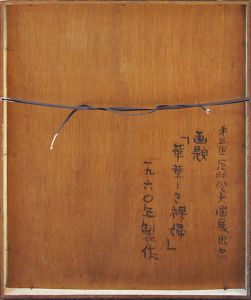 第三回 展出品
画題
「華華しき裸婦」
一九六〇年製作